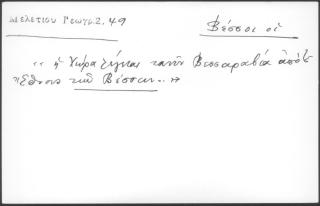 Μελετίου Γεωγρ. 2, 49
Βέσσοι οἱ
"ἡ Χώρα λέγεται τανῦν Βεσσαραβία ἀπὸ τὸ
Ἔθνος τῶν Βέσσων..."